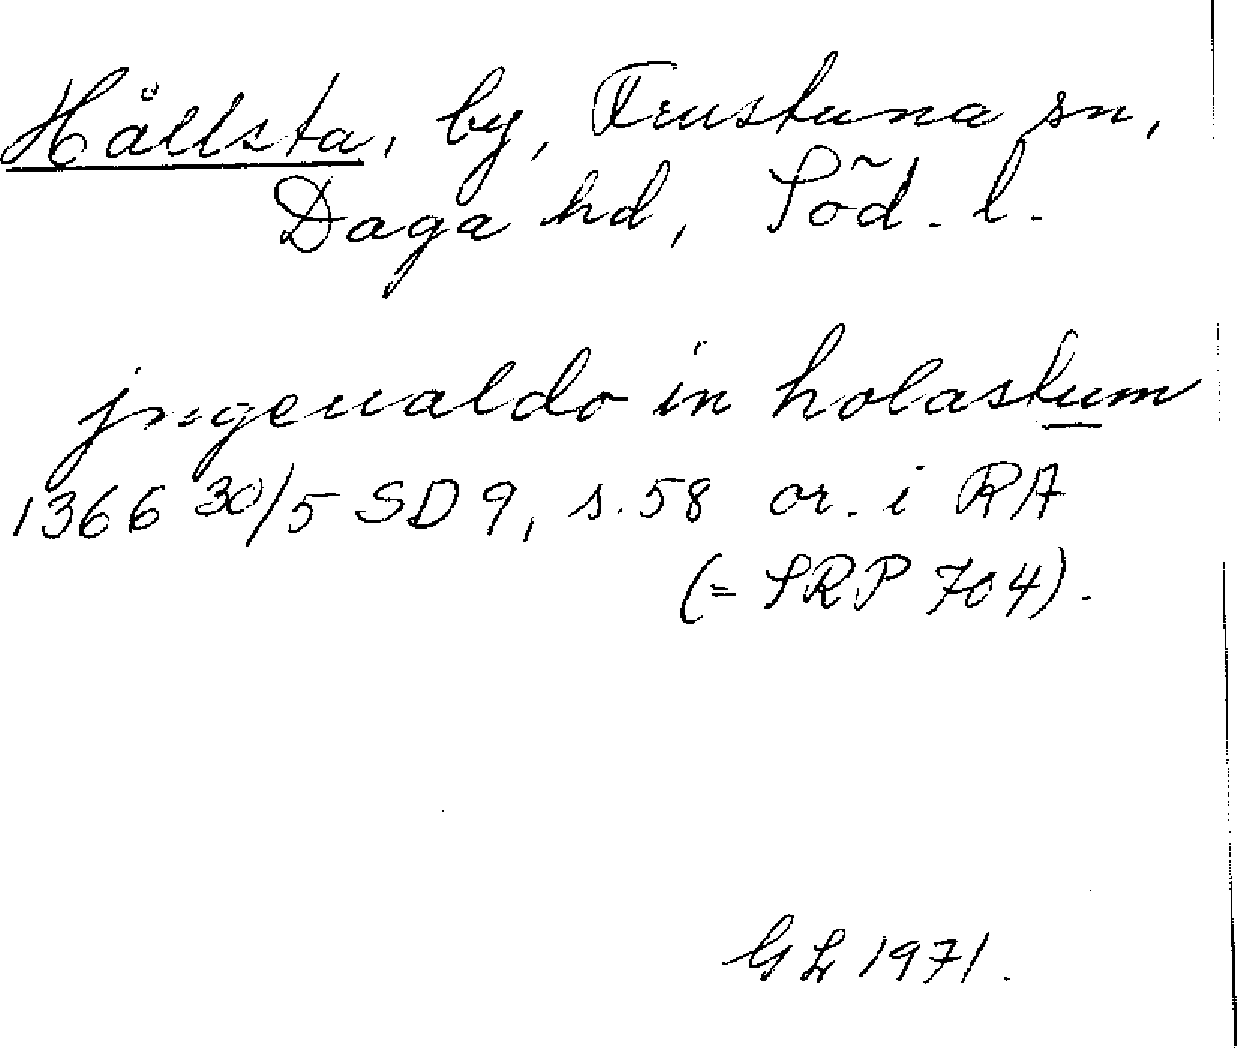 Hållsta, by, Frustuna sn,
Daga hd, Söd. l.
jngeualdo in holastum
1366 30/5 SD 9, s. 58 or. i RA
(= SRP 704).
GL 1971.